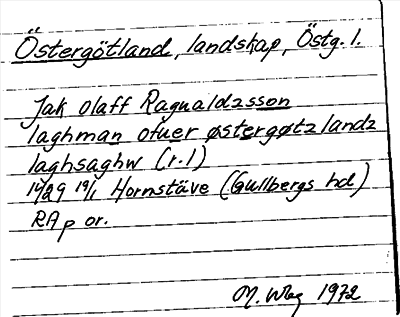 Östergötland, landskap, Östg. l.
Jak Olaff Ragualdzsson
laghman ofuer østergøtzlandz
laghsaghw (r. 1)
1429 19/1 Hornstäve (Gullbergs hd)
RAp or.
M. Wbg 1972